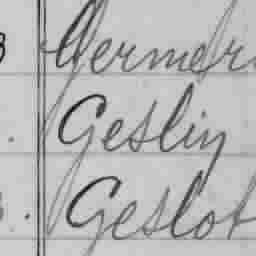 Germer
Geslin
Geslot